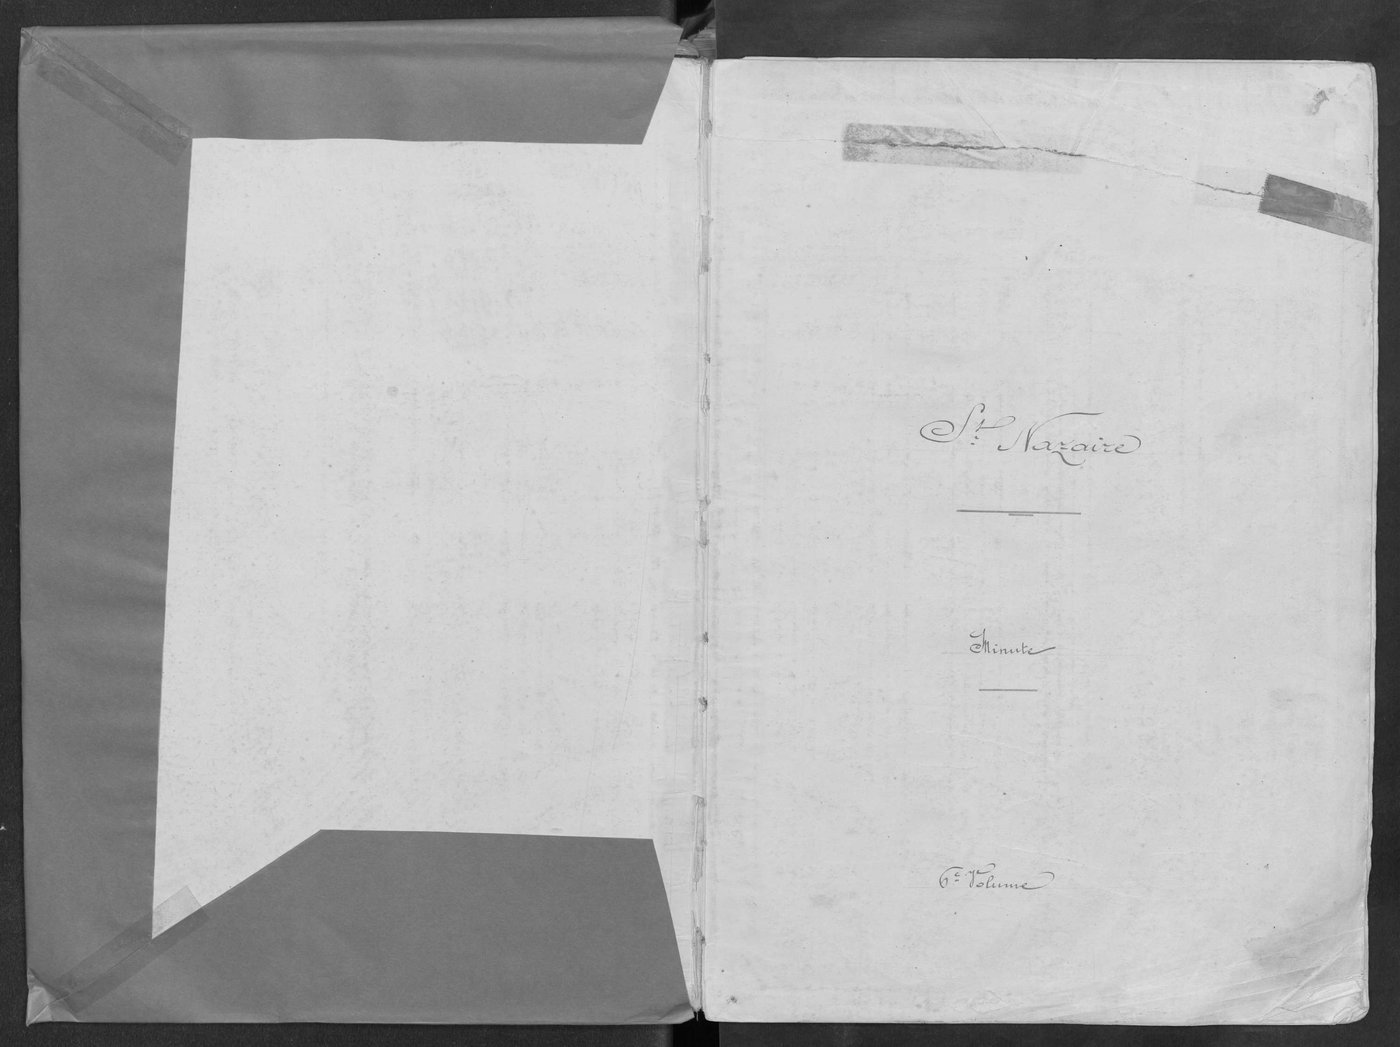 St. Nazaire
Minute
6e Volume